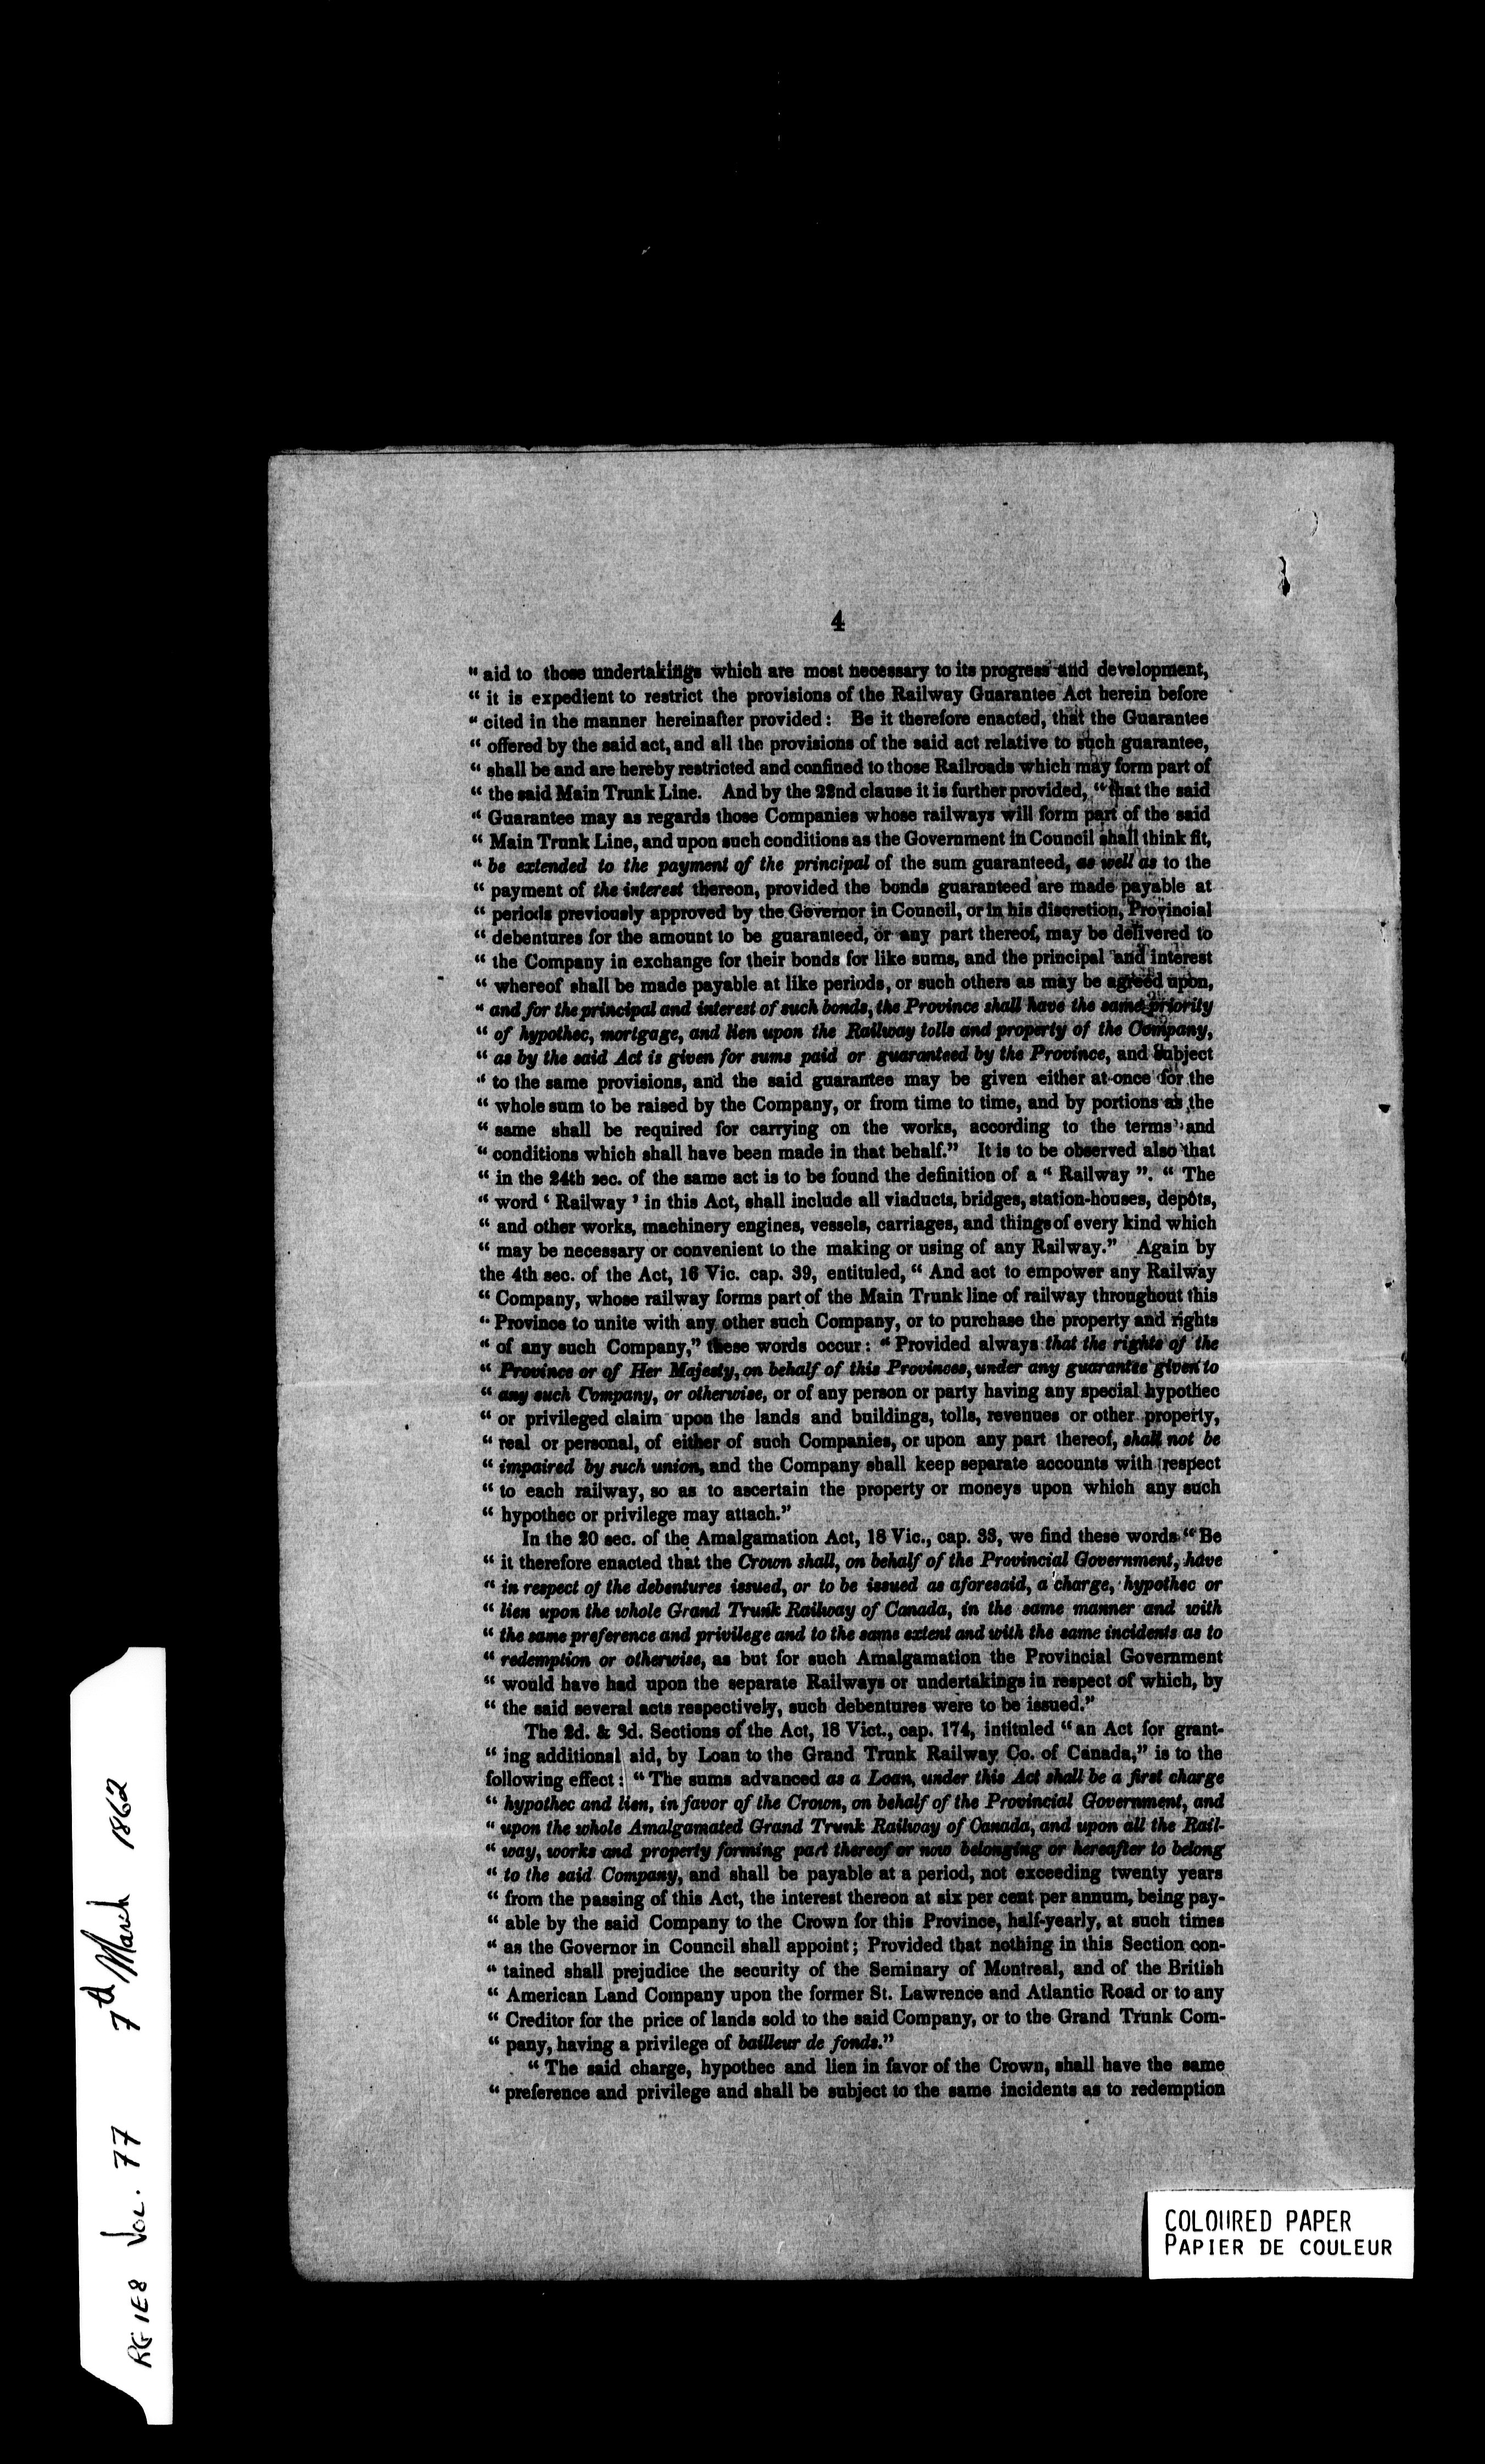 4
" aid to those undertakings which are most necessary to its progress and development,
" it is expedient to restrict the provisions of the Railway Guarantee Act herein before
" cited in the manner hereinafter provided: Be it therefore enacted, that the Guarantee
" offered by the said act, and all the provisions of the said act relative to such guarantee,
" shall be and are hereby restricted and confined to those Railroads which may form part of
" the said Main Trunk Line. And by the 22nd clause it is further provided, "that the said
" Guarantee may as regards those Companies whose railways will form part of the said
" Main Trunk Line, and upon such conditions as the Government in Council shall think fit,
" be extended to the payment of the principal of the sum guaranteed, as well as to the
" payment of the interest thereon, provided the bonds guaranteed are made payable at
" periods previously approved by the Governor in Council, or in his discretion, Provincial
" debentures for the amount to be guaranteed, or any part thereof, may be delivered to
" the Company in exchange for their bonds for like sums, and the principal and interest
" whereof shall be made payable at like periods, or such others as may be agreed upon,
" and for the principal and interest of such bonds, the Province shall have the same priority
" of hypothec, mortgage, and lien upon the Railway tolls and property of the Company,
" as by the said Act is given for sums paid or guaranteed by the Province, and subject
" to the same provisions, and the said guarantee may be given either at once for the
" whole sum to be raised by the Company, or from time to time, and by portions as the
" same shall be required for carrying on the works, according to the terms and
" conditions which shall have been made in that behalf." It is to be observed also that
" in the 24th sec. of the same act is to be found the definition of a " Railway ". " The
" word ' Railway ' in this Act, shall include all viaducts, bridges, station-houses, depôts,
" and other works, machinery engines, vessels, carriages, and things of every kind which
" may be necessary or convenient to the making or using of any Railway." Again by
the 4th sec. of the Act, 16 Vic. cap. 39, entituled, " And act to empower any Railway
" Company, whose railway forms part of the Main Trunk line of railway throughout this
" Province to unite with any other such Company, or to purchase the property and rights
" of any such Company," these words occur: " Provided always that the rights of the
" Province or of Her Majesty, on behalf of this Provinces, under any guarantee given to
" any such Company, or otherwise, or of any person or party having any special hypothec
" or privileged claim upon the lands and buildings, tolls, revenues or other property,
" real or personal, of either of such Companies, or upon any part thereof, shall not be
" impaired by such union, and the Company shall keep separate accounts with respect
" to each railway, so as to ascertain the property or moneys upon which any such
" hypothec or privilege may attach."
In the 20 sec. of the Amalgamation Act, 18 Vic., cap. 33, we find these words "Be
" it therefore enacted that the Crown shall, on behalf of the Provincial Government, have
" in respect of the debentures issued, or to be issued as aforesaid, a charge, hypothec or
" lien upon the whole Grand Trunk Railway of Canada, in the same manner and with
" the same preference and privilege and to the same extent and with the same incidents as to
" redemption or otherwise, as but for such Amalgamation the Provincial Government
" would have had upon the separate Railways or undertakings in respect of which, by
" the said several acts respectively, such debentures were to be issued."
The 2d. & 3d. Sections of the Act, 18 Vict., cap. 174, intituled "an Act for grant-
" ing additional aid, by Loan to the Grand Trunk Railway Co. of Canada," is to the
following effect: "The sums advanced as a Loan, under this Act shall be a first charge
" hypothec and lien, in favor of the Crown, on behalf of the Provincial Government, and
" upon the whole Amalgamated Grand Trunk Railway of Canada, and upon all the Rail-
" way, works and property forming part thereof or now belonging or hereafter to belong
" to the said Company, and shall be payable at a period, not exceeding twenty years
" from the passing of this Act, the interest thereon at six per cent per annum, being pay-
" able by the said Company to the Crown for this Province, half-yearly, at such times
" as the Governor in Council shall appoint; Provided that nothing in this Section con-
" tained shall prejudice the security of the Seminary of Montreal, and of the British
" American Land Company upon the former St. Lawrence and Atlantic Road or to any
" Creditor for the price of lands sold to the said Company, or to the Grand Trunk Com-
" pany, having a privilege of bailleur de fonds."
" The said charge, hypothec and lien in favor of the Crown, shall have the same
" preference and privilege and shall be subject to the same incidents as to redemption
COLOURED PAPER
PAPIER DE COULEUR
RG 1E8 Vol. 77 7th March 1862